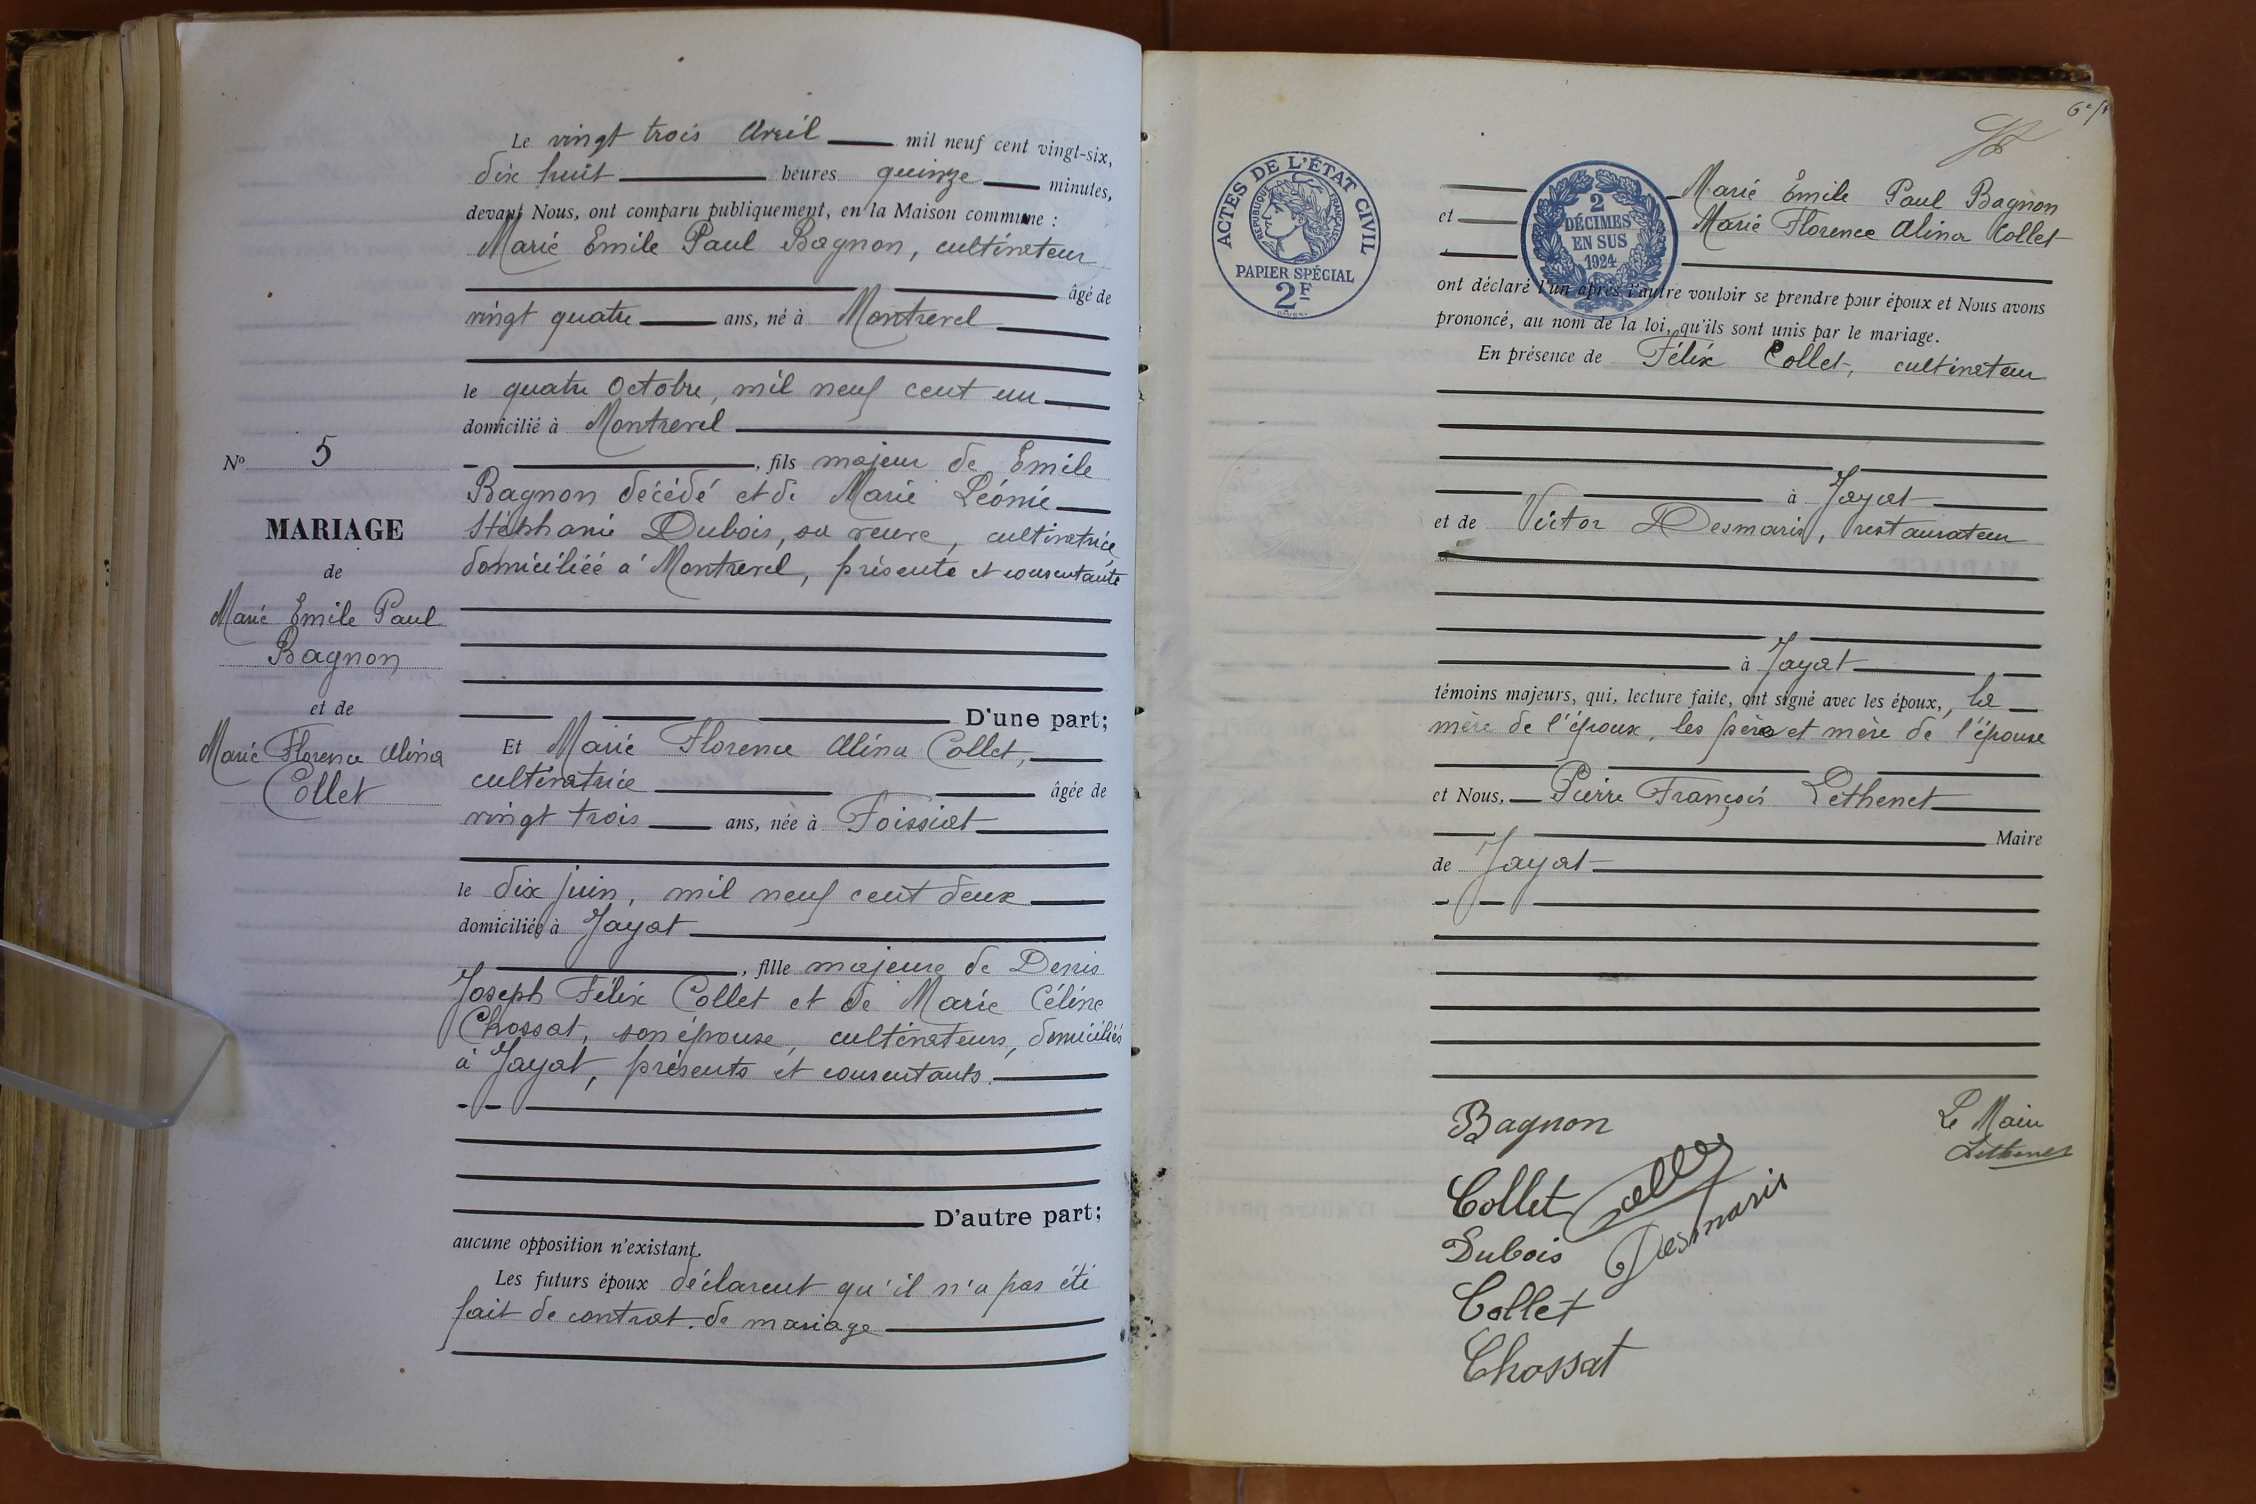 Le vingt trois Avril mil neuf cent vingt-six,
dix huit heures quinze minutes,
devant Nous, ont comparu publiquement, en la Maison commune :
Marie Emile Paul Bagnon, cultivateur
âgé de
vingt quatre ans, né à Montrevel
le quatre Octobre, mil neuf cent un
domicilié à Montrevel
, fils majeur de Emile
Bagnon décédé et de Marie Léonie
Stéphanie Dubois, sa veuve, cultivatrice
domiciliée à Montrevel, présente et consentante
D'une part;
Et Marie Florence Alina Collet,
cultivatrice âgée de
vingt trois ans, née à Foissiat
le dix juin, mil neuf cent deux
domiciliée à Jayat
, fille majeure de Denis
Joseph Félix Collet et de Marie Céline
Chossat, son épouse, cultivateurs, domiciliés
à Jayat, présents et consentants.
D'autre part;
aucune opposition n'existant.
Les futurs époux déclarent qu'il n'a pas été
fait de contrat de mariage
No 5
MARIAGE
de
Marie Emile Paul
Bagnon
et de
Marie Florence Alina
Collet
ACTES DE L'ÉTAT CIVIL
RÉPUBLIQUE FRANÇAISE
PAPIER SPÉCIAL
2F
2
DÉCIMES
EN SUS
1924
Marie Emile Paul Bagnon
et Marie Florence Alina Collet
ont déclaré l'un après l'autre vouloir se prendre pour époux et Nous avons
prononcé, au nom de la loi, qu'ils sont unis par le mariage.
En présence de Félix Collet, cultivateur
à Jayat
et de Victor Desmaris, restaurateur
à Jayat
témoins majeurs, qui, lecture faite, ont signé avec les époux, la
mère de l'époux, les père et mère de l'épouse
et Nous, Pierre François Lethenet
Maire
de Jayat
Bagnon
Collet Collet
Dubois Desmaris
Collet
Chossat
Le Maire
Lethenet